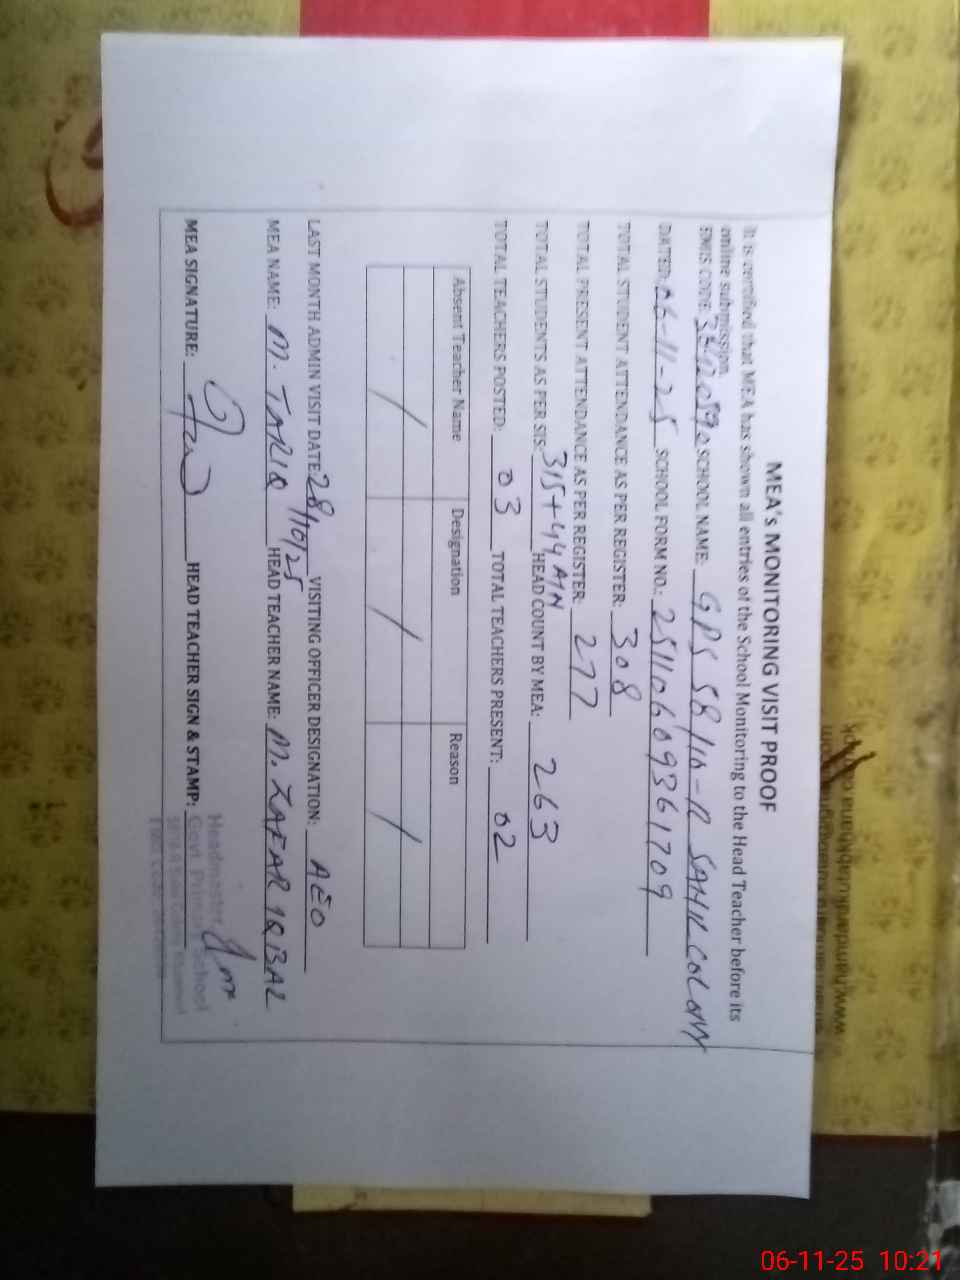 MEA's MONITORING VISIT PROOF
It is certified that MEA has shown all entries of the School Monitoring to the Head Teacher before its
online submission.
EMIS CODE: SCHOOL NAME: GPS 58/10-R SAHU COLONY
DATED: 06-11-25 SCHOOL FORM NO.: 25110609361709
TOTAL STUDENT ATTENDANCE AS PER REGISTER: 308
TOTAL PRESENT ATTENDANCE AS PER REGISTER: 277
TOTAL STUDENTS AS PER SIS: 315+44 HEAD COUNT BY MEA: 263
TOTAL TEACHERS POSTED: 03 TOTAL TEACHERS PRESENT: 02
Absent Teacher Name Designation Reason
/ / /
LAST MONTH ADMIN VISIT DATE: 28/10/25 VISITING OFFICER DESIGNATION: AEO
MEA NAME: M. TARIQ HEAD TEACHER NAME: M. ZAFAR IQBAL
MEA SIGNATURE: HEAD TEACHER SIGN & STAMP:
Headmaster
Govt. Primary School
06-11-25 10:21